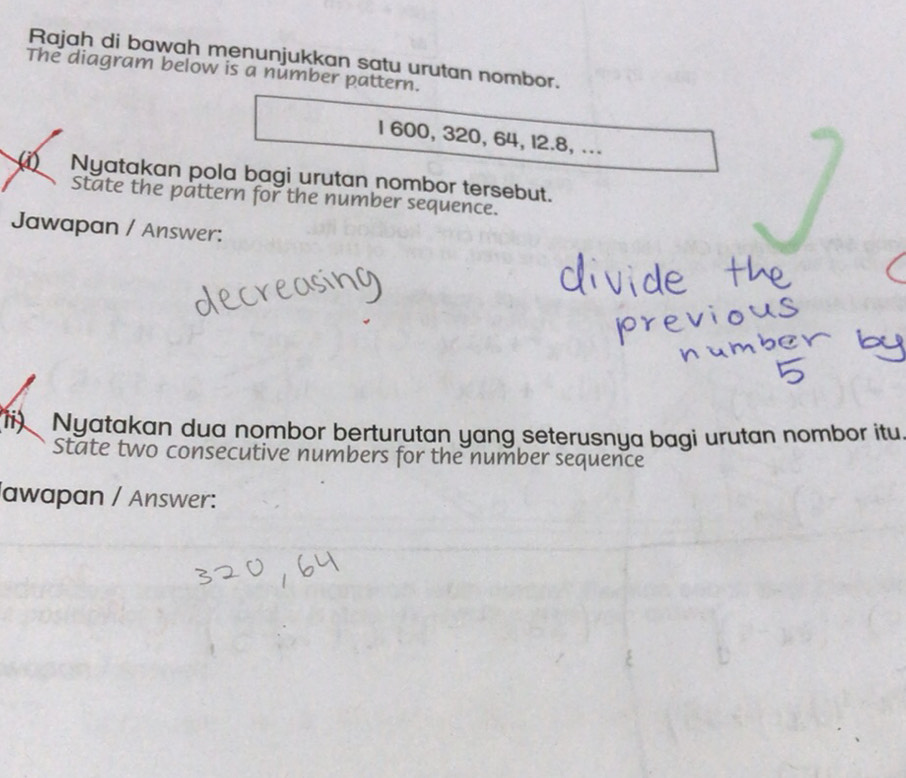 Rajah di bawah menunjukkan satu urutan nombor.
The diagram below is a number pattern.
1 600, 320, 64, 12.8, ...
(i) Nyatakan pola bagi urutan nombor tersebut.
State the pattern for the number sequence.
Jawapan / Answer:
decreasing
divide the
previous
number by
5
(ii) Nyatakan dua nombor berturutan yang seterusnya bagi urutan nombor itu.
State two consecutive numbers for the number sequence
Jawapan / Answer:
320, 64